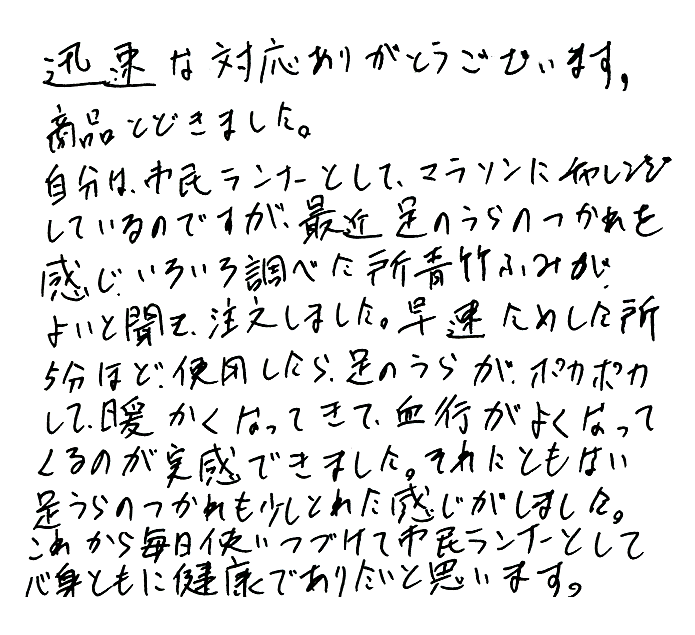 迅速な対応ありがとうございます。
商品とどきました。
自分は、市民ランナーとして、マラソンにチャレンジ
しているのですが、最近足のうらのつかれを
感じ、いろいろ調べた所青竹ふみが、
よいと聞き、注文しました。早速ためした所
5分ほど、使用したら、足のうらが、ポカポカ
して、暖かくなってきて、血行がよくなって
くるのが実感できました。それにともない
足うらのつかれも少しとれた感じがしました。
これから毎日使いつづけて市民ランナーとして
心身ともに健康でありたいと思います。